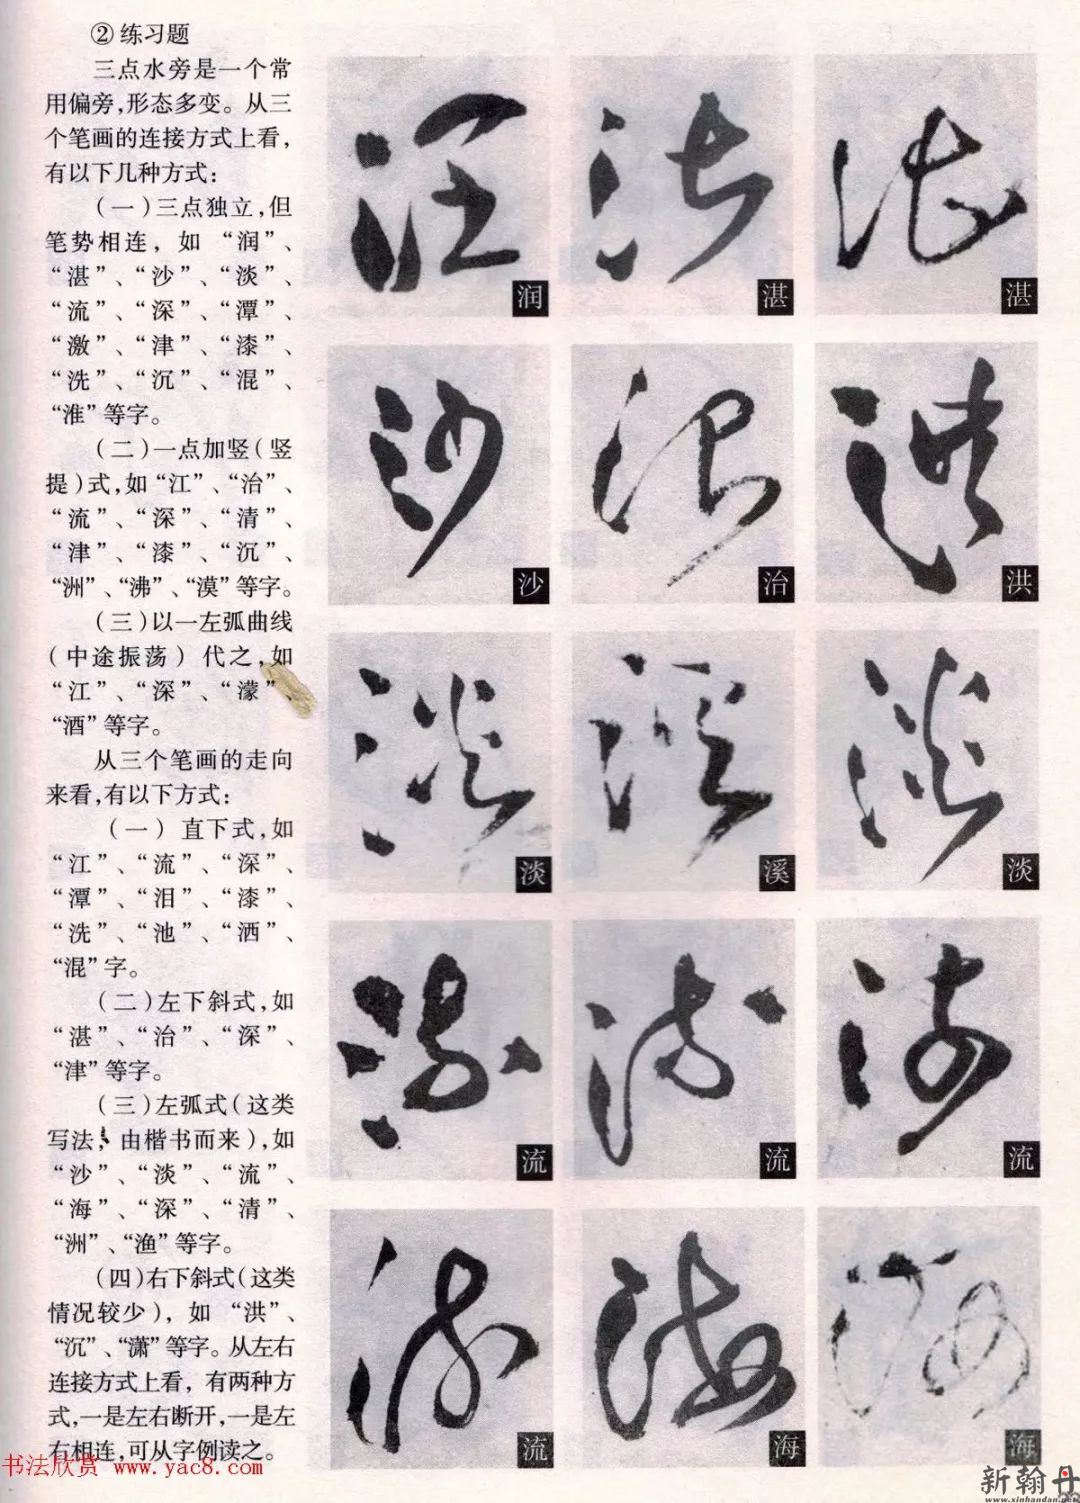 ②练习题
三点水旁是一个常
用偏旁,形态多变。从三
个笔画的连接方式上看,
有以下几种方式:
(一)三点独立,但
笔势相连，如“润”、
“湛”、“沙”、“淡”、
“流”、“深”、“潭”、
“激”、“津”、“漆”、
“洗”、“沉”、“混”、
“淮”等字。
(二)一点加竖(竖
提)式,如“江”、“治”、
“流”、“深”、“清”、
“津”、“漆”、“沉”、
“洲”、“沸”、“漠”等字。
(三)以一左弧曲线
(中途振荡)代之,如
“江”、“深”、“濛”、
“酒”等字。
从三个笔画的走向
来看,有以下方式:
(一)直下式,如
“江”、“流”、“深”、
“潭”、“泪”、“漆”、
“洗”、“池”、“洒”、
“混”字。
(二)左下斜式,如
“湛”、“治”、“深”、
“津”等字。
(三)左弧式(这类
写法,由楷书而来),如
“沙”、“淡”、“流”、
“海”、“深”、“清”、
“洲”、“渔”等字。
(四)右下斜式(这类
情况较少)，如“洪”、
“沉”、“潇”等字。从左右
连接方式上看，有两种方
式,一是左右断开,一是左
右相连,可从字例读之。
润 湛 湛
沙 治 洪
淡 溪 淡
流 流 流
流 海 海
书法欣赏 www.yac8.com
新翰丹
www.xinhandan.com